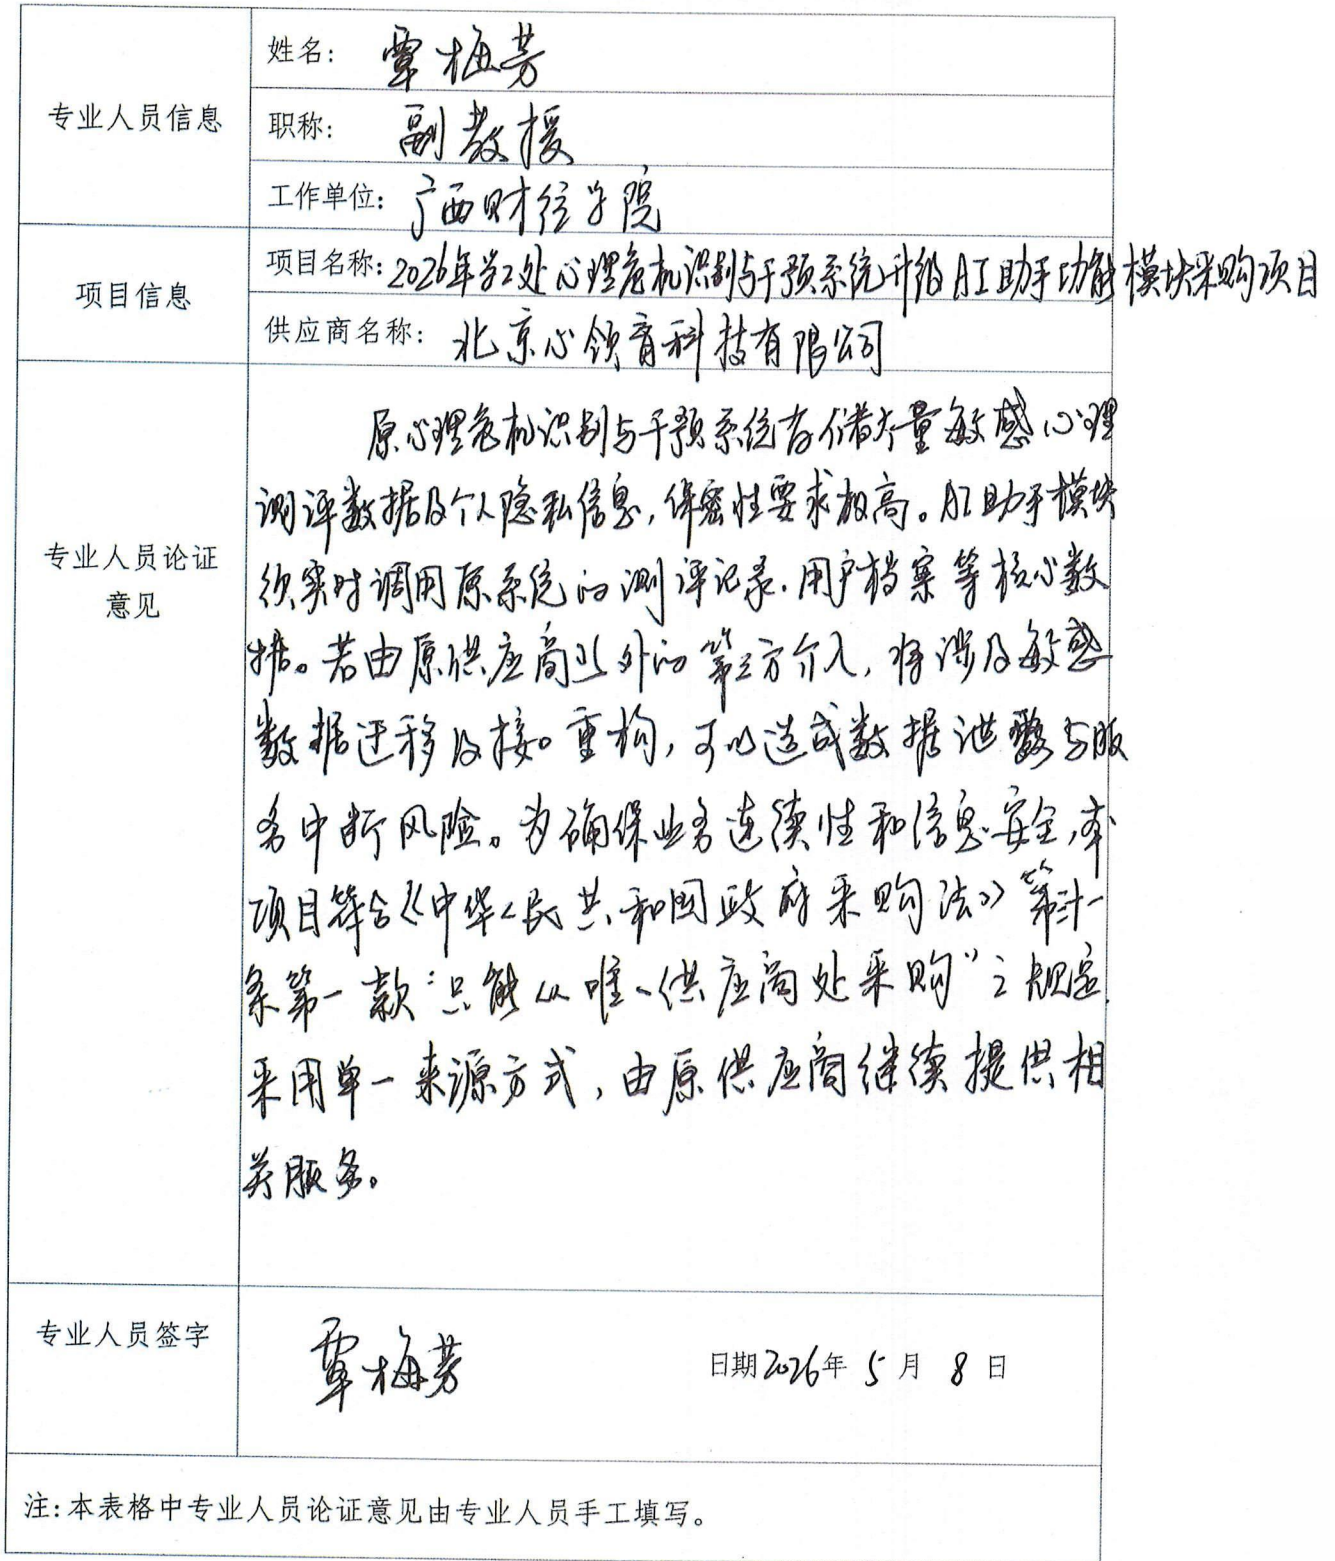 专业人员信息
姓名: 覃梅芳
职称: 副教授
工作单位: 广西财经学院
项目信息
项目名称: 2026年学工处心理危机识别与干预系统升级AI助手功能模块采购项目
供应商名称: 北京心领育科技有限公司
专业人员论证
意见
原心理危机识别与干预系统存储大量敏感心理
测评数据及个人隐私信息,保密性要求极高。AI助手模块
须实时调用原系统的测评记录、用户档案等核心数
据。若由原供应商以外的第三方介入,将涉及敏感
数据迁移及接口重构,可以造成数据泄露与服
务中断风险。为确保业务连续性和信息安全,本
项目符合《中华人民共和国政府采购法》第卅一
条第一款“只能从唯一供应商处采购”之规定,
采用单一来源方式,由原供应商继续提供相
关服务。
专业人员签字
覃梅芳
日期2026年 5 月 8 日
注:本表格中专业人员论证意见由专业人员手工填写。